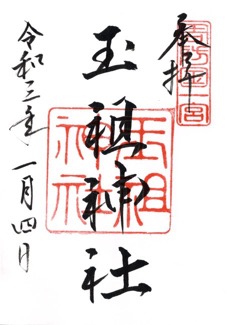 奉拝
周防国一宮
玉祖神社
玉祖神社
令和三年一月四日